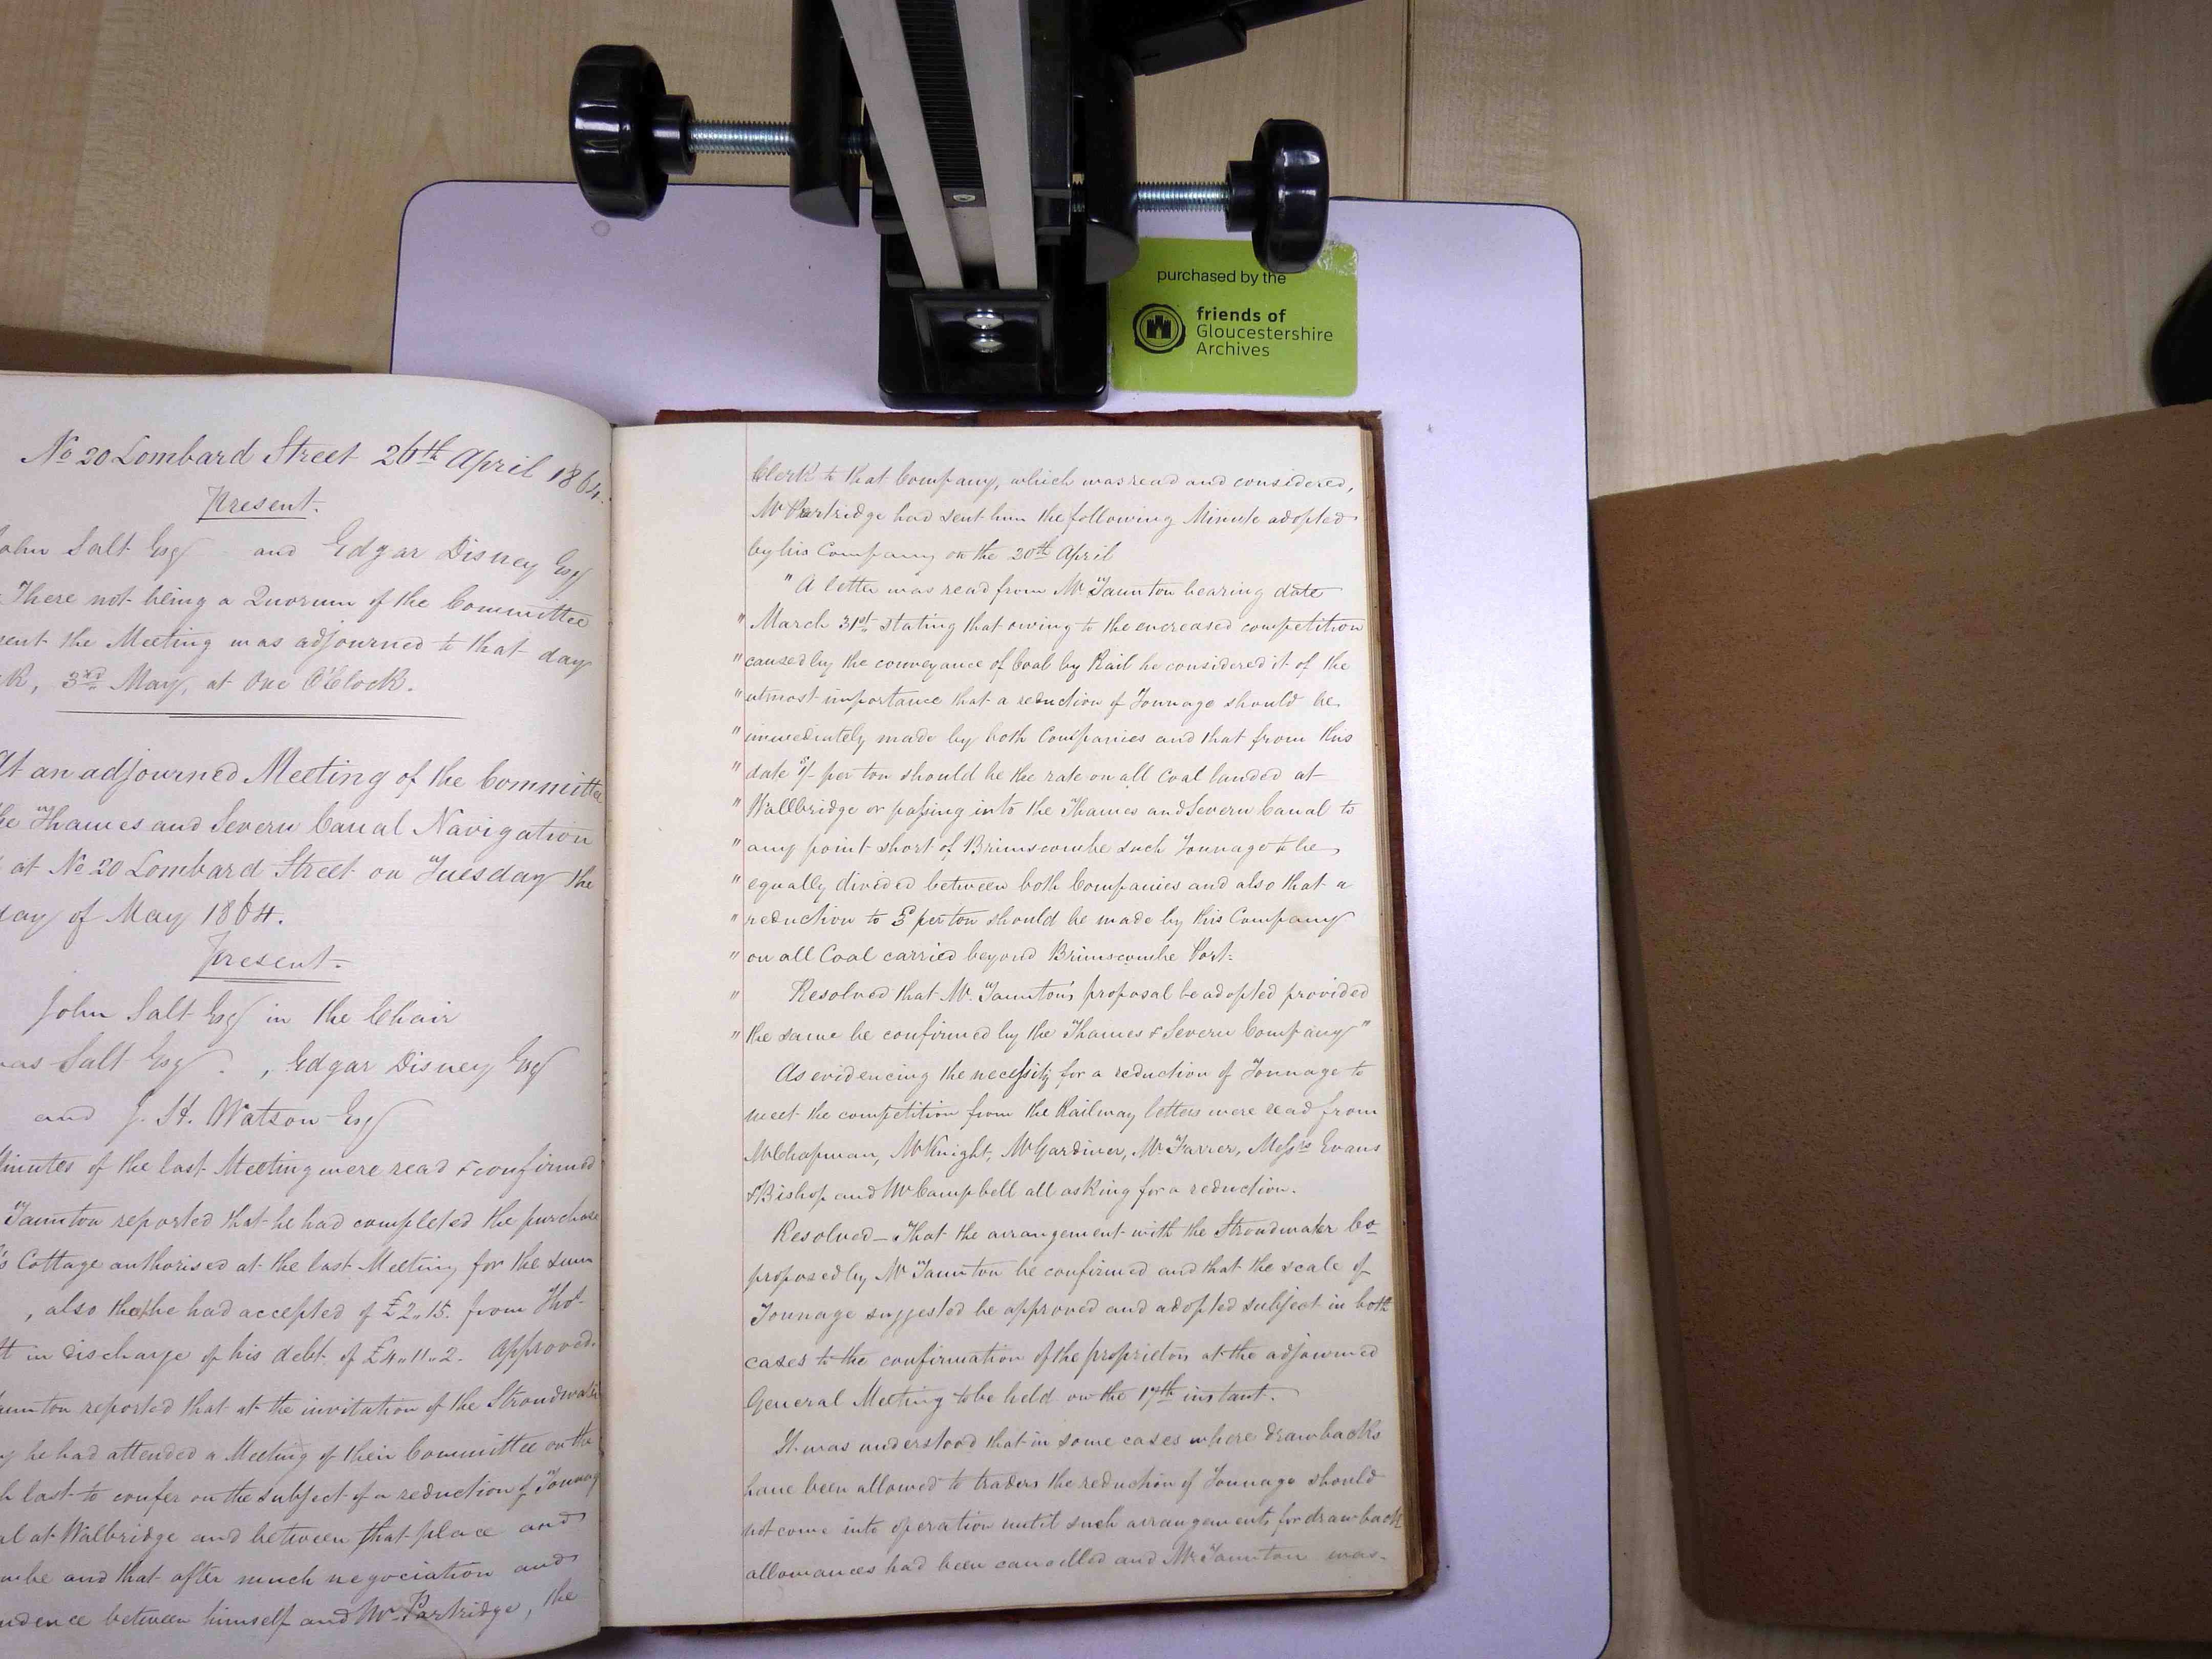 purchased by the
friends of
Gloucestershire
Archives
No 20 Lombard Street 26th April 1864.
Present.
John Salt Esq and Edgar Disney Esq
There not being a Quorum of the Committee
sent the Meeting was adjourned to that day
k, 3rd May, at One O'Clock.
At an adjourned Meeting of the Committee
he Thames and Severn Canal Navigation
at No 20 Lombard Street on Tuesday the
day of May 1864.
Present.
John Salt Esq in the Chair
as Salt Esq , Edgar Disney Esq
and J. H. Watson Esq
Minutes of the last Meeting were read & confirmed
Taunton reported that he had completed the purchase
's Cottage authorised at the last Meeting for the sum
, also that he had accepted of £2..15. from Thos
tt in discharge of his debt of £4..11..2. Approved.
aunton reported that at the invitation of the Stroudwater
y he had attended a Meeting of their Committee on the
h last to confer on the subject of a reduction of Tonnag
al at Walbridge and between that place and
mbe and that after much negociation and
ndence between himself and Mr Partridge, the
Clerk to that Company, which was read and considered,
Mr Partridge had sent him the following Minute adopted
by his Company on the 20th April
" A letter was read from Mr Taunton bearing date
" March 31st stating that owing to the encreased competition
" caused by the conveyance of Coal by Rail he considered it of the
" utmost importance that a reduction of Tonnage should be
" immediately made by both Companies and that from this
" date per ton should be the rate on all Coal landed at
" Wallbridge or passing into the Thames and Severn Canal to
" any point short of Brimscombe such Tonnage to be
" equally divided between both Companies and also that a
" reduction to per ton should be made by this Company
" on all Coal carried beyond Brimscombe Port.
" Resolved that Mr. Taunton's proposal be adopted provided
" the same be confirmed by the Thames & Severn Company"
As evidencing the necessity for a reduction of Tonnage to
meet the competition from the Railway letters were read from
Mr Chapman, Mr Knight, Mr Gardiner, Mr Farrer, Messrs Evans
& Bishop and Mr Campbell all asking for a reduction.
Resolved – That the arrangement with the Stroudwater Co
proposed by Mr Taunton be confirmed and that the scale of
Tonnage suggested be approved and adopted subject in both
cases to the confirmation of the proprietors at the adjourned
General Meeting to be held on the 17th instant.
It was understood that in some cases where drawbacks
have been allowed to traders the reduction of Tonnage should
not come into operation until such arrangements for drawback
allowances had been cancelled and Mr Taunton was